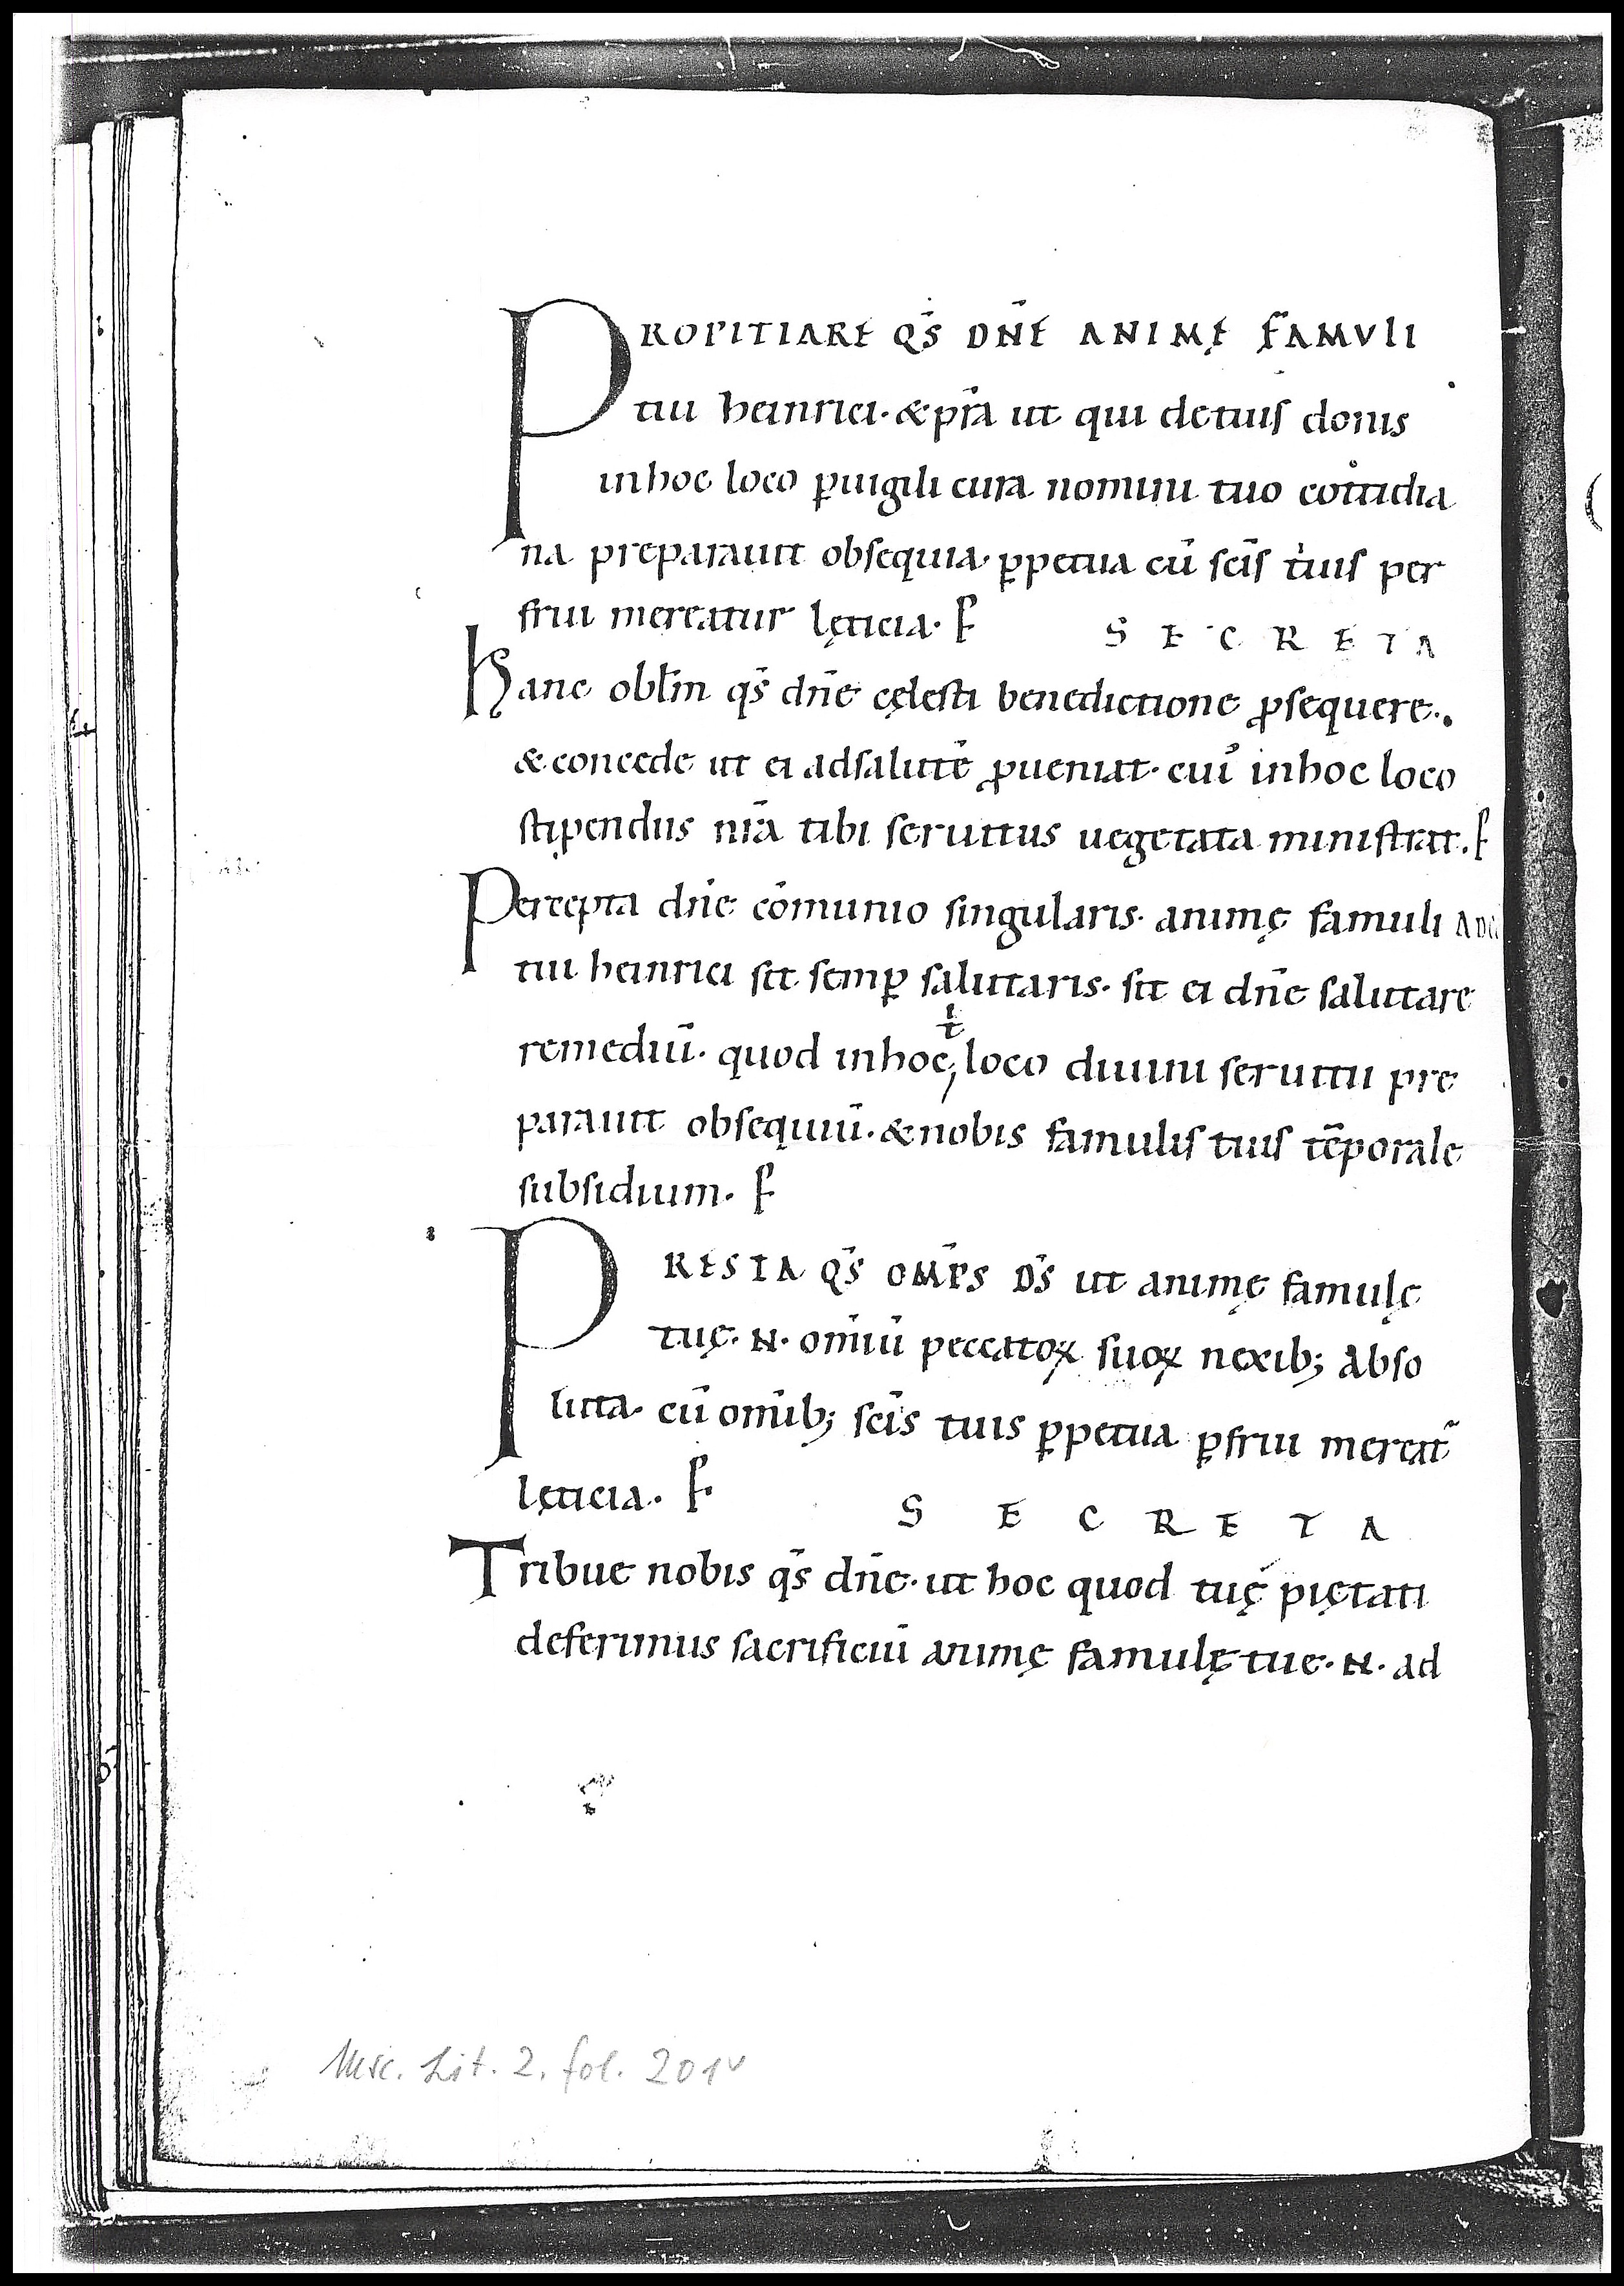 PROPITIARE QS̄ DN̄E ANIMĘ FAMVLI
tui heinrici· & pr̄a ut qui detuis donis
inhoc loco ꝑuigili cura nomini tuo cottidia
na preparauit obsequia· ꝑpetua cū sc̄is tuis per
frui mereatur lęticia· P̄
SECRETA
Hanc obl̄m qs̄ dn̄e cęlesti benedictione ꝓsequere·
& concede ut ei adsalutē ꝓueniat· cui᷒ inhoc loco
stipendiis nr̄a tibi seruitus uegetata ministrat. P̄
Percepta dn̄e cōmunio singularis· animę famuli
tui heinrici sit semꝑ salutaris· sit ei dn̄e salutare
remediū· quod inhoc, loco diuini seruitii pre
parauit obsequiū· & nobis famulis tuis tēporale
subsidium· P̄
PRESTA QS̄ OMP̄S DS̄ ut animę famulę
tuę· N· om̄iū peccatoꝝ suoꝝ nexib; abso
luta· cū omīb; sc̄is tuis ꝑpetua ꝑfrui mereat᷑
lęticia· P̄
SECRETA
Tribue nobis qs̄ dn̄e· ut hoc quod tuę piętati
deferimus sacrificiū animę famulę tue· N· ad
Msc. Lit. 2. fol. 201v